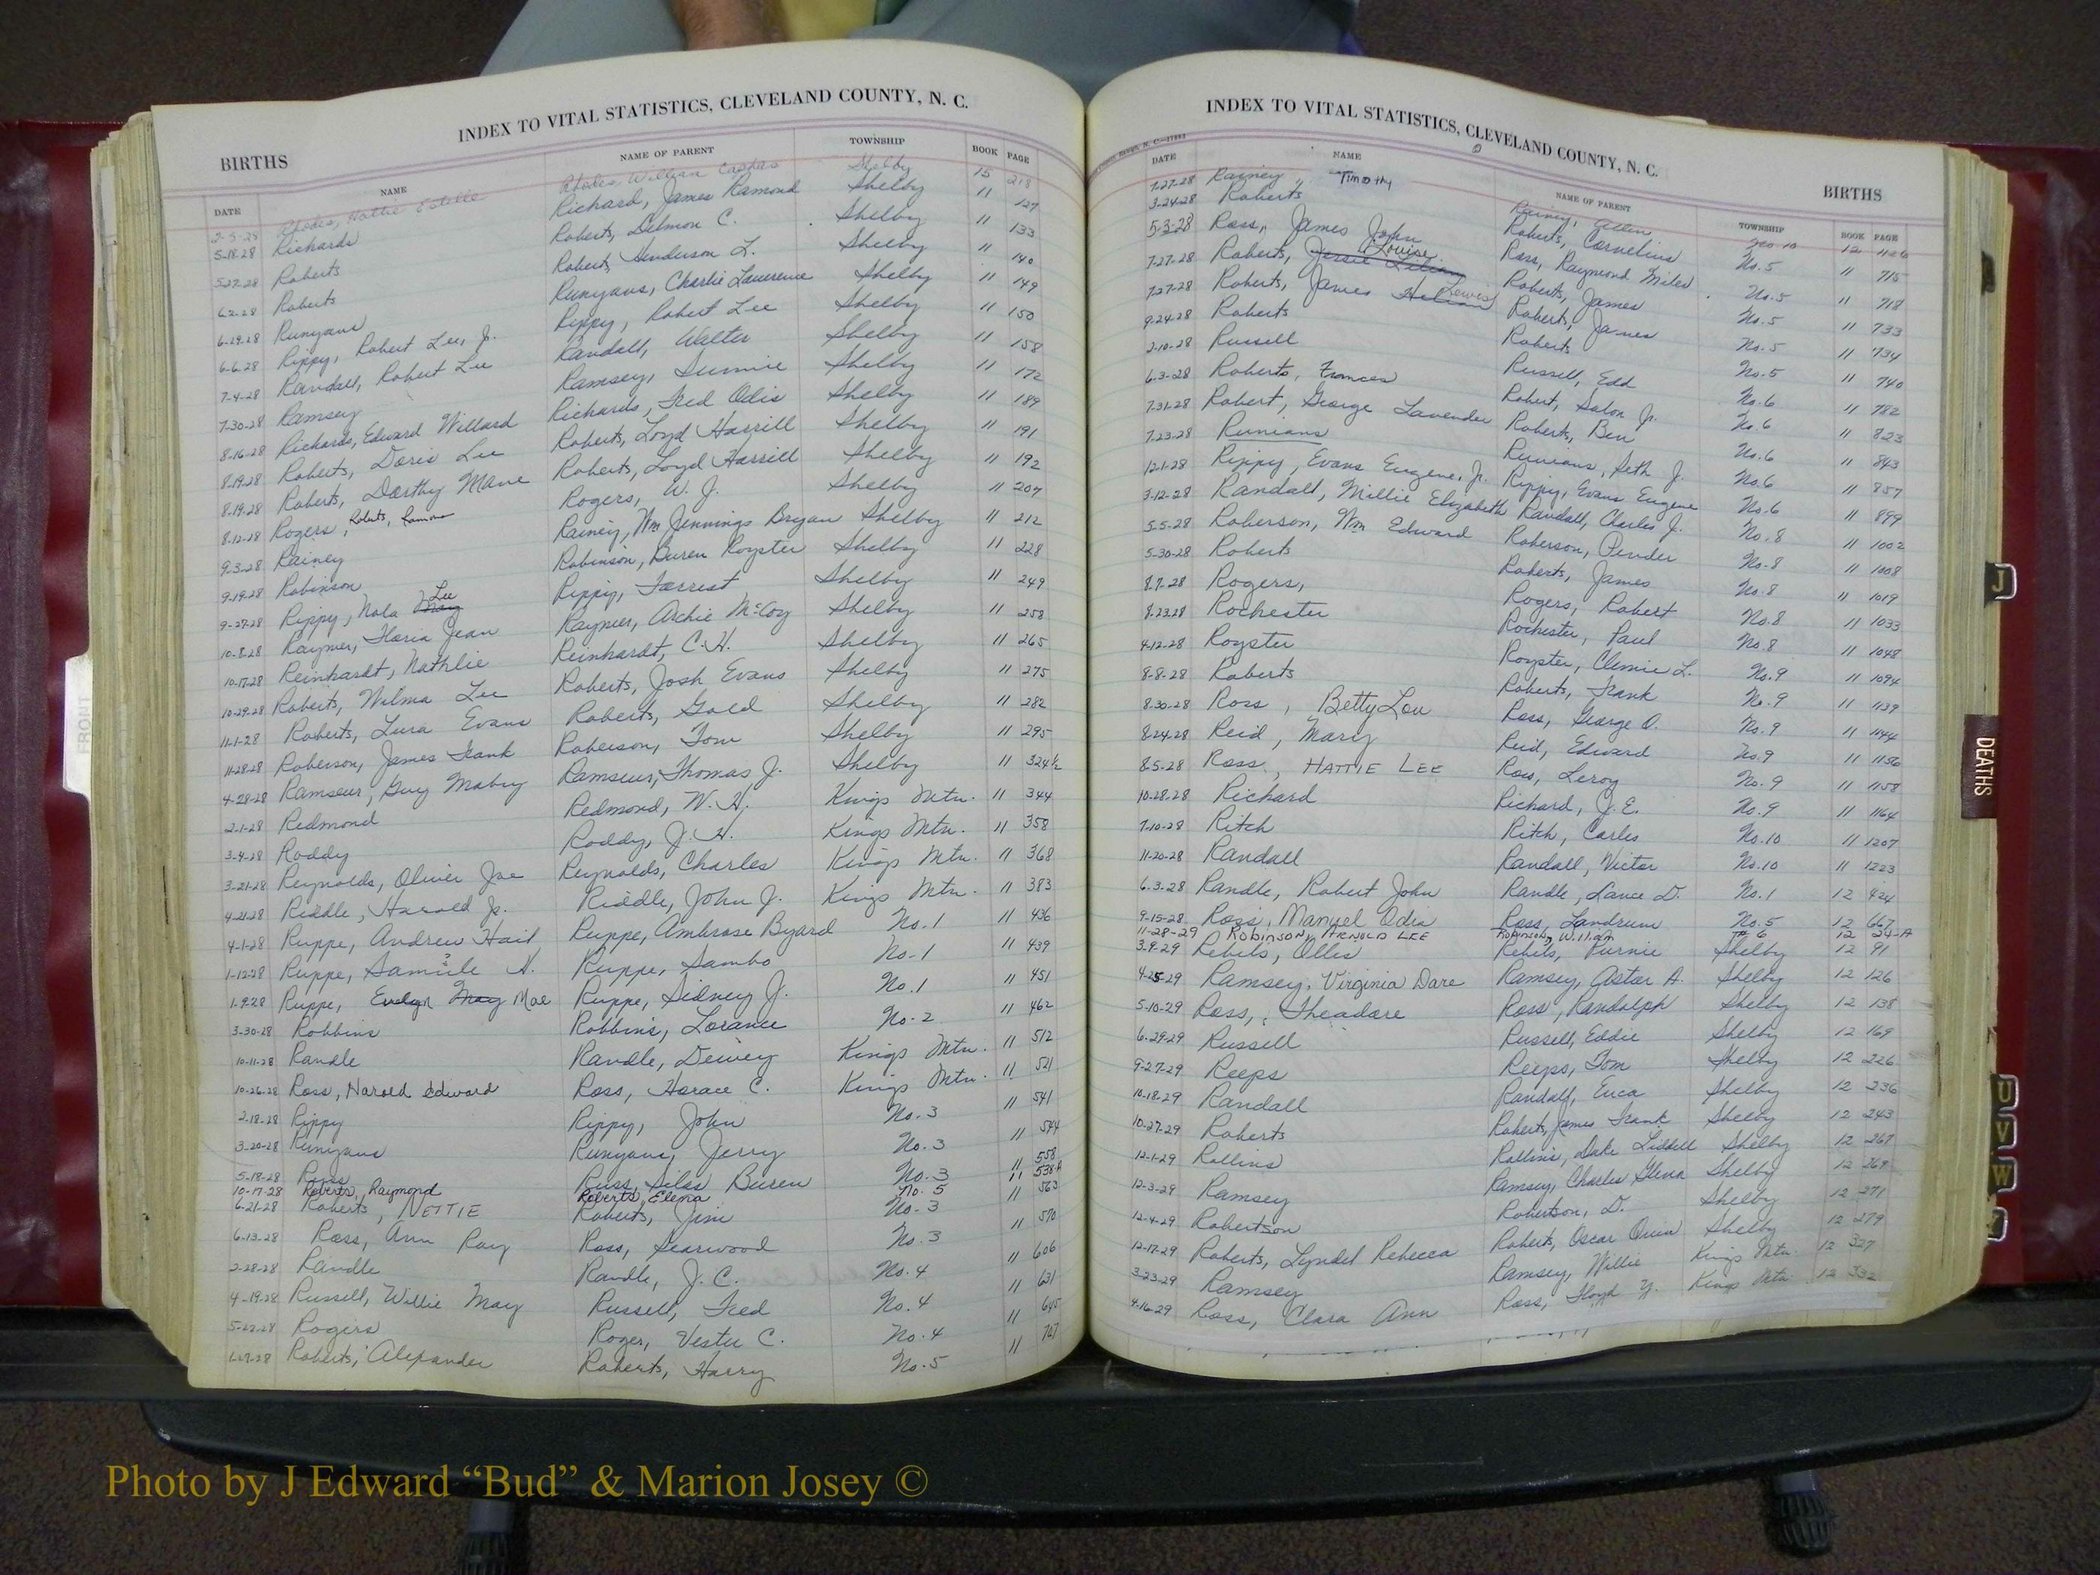 INDEX TO VITAL STATISTICS, CLEVELAND COUNTY, N. C.
BIRTHS
DATE NAME NAME OF PARENT TOWNSHIP BOOK PAGE
2-5-28 Rhodes, Hattie Estelle Rhodes, William Shelby 15 218
5-18-28 Richards Richard, James Ramond Shelby 11 127
5-27-28 Roberts Roberts, Delmon C. Shelby 11 133
6-2-28 Roberts Roberts, Henderson L. Shelby 11 140
6-29-28 Runyans Runyans, Charlie Lawrence Shelby 11 149
6-6-28 Rippy, Robert Lee, Jr. Rippy, Robert Lee Shelby 11 150
7-4-28 Randall, Robert Lee Randall, Walter Shelby 11 158
7-30-28 Ramsey Ramsey, Shelby 11 172
8-16-28 Richards, Edward Willard Richards, Fred Odis Shelby 11 189
8-19-28 Roberts, Doris Lee Roberts, Loyd Harrill Shelby 11 191
8-19-28 Roberts, Dorthy Mave Roberts, Loyd Harrill Shelby 11 192
8-12-28 Rogers, Roberts, Ramona Rogers, W. J. Shelby 11 207
9-3-28 Rainey Rainey, Wm Jennings Bryan Shelby 11 212
9-19-28 Robinson Robinson, Buren Royster Shelby 11 228
9-27-28 Rippy, Nola May Lee Rippy, Forrest Shelby 11 249
10-8-28 Raymer, Floria Jean Raymer, Archie McCoy Shelby 11 258
10-17-28 Reinhardt, Nathlie Reinhardt, C. H. Shelby 11 265
10-29-28 Roberts, Wilma Lee Roberts, Josh Evans Shelby 11 275
11-1-28 Roberts, Lura Evans Roberts, Gold Shelby 11 282
11-28-28 Roberson, James Frank Roberson, Tom Shelby 11 295
4-28-28 Ramseur, Guy Mabry Ramseur, Thomas J. Shelby 11 324½
2-1-28 Redmond Redmond, W. H. Kings Mtn. 11 344
3-4-28 Roddy Roddy, J. H. Kings Mtn. 11 358
3-21-28 Reynolds, Oliver Joe Reynolds, Charles Kings Mtn. 11 368
4-21-28 Riddle, Harold Jr. Riddle, John J. Kings Mtn. 11 383
4-1-28 Ruppe, Andrew Hail Ruppe, Ambrose Byard No. 1 11 436
1-12-28 Ruppe, Samiele N. Ruppe, Sambo No. 1 11 439
1-9-28 Ruppe, Evelyn May Mae Ruppe, Sidney J. No. 1 11 451
3-30-28 Robbins Robbins, Lorance No. 2 11 462
10-11-28 Randle Randle, Dewey Kings Mtn. 11 512
10-26-28 Ross, Harold Edward Ross, Horace C. Kings Mtn. 11 521
2-18-28 Rippy Rippy, John No. 3 11 541
3-20-28 Runyans Runyans, Jerry No. 3 11 544
5-18-28 Russ Russ, Silas Buren No. 3 11 558
10-17-28 Roberts, Raymond Roberts, Elena No. 5 11 538-A
6-21-28 Roberts, NETTIE Roberts, Jim No. 3 11 563
6-13-28 Ross, Ann Ray Ross, Searwood No. 3 11 570
2-28-28 Randle Randle, J. C. No. 4 11 606
4-19-28 Russell, Willie May Russell, Fred No. 4 11 631
5-22-28 Rogers Roger, Vester C. No. 4 11 645
1-27-28 Roberts, Alexander Roberts, Harry No. 5 11 707
INDEX TO VITAL STATISTICS, CLEVELAND COUNTY, N. C.
BIRTHS
DATE NAME NAME OF PARENT TOWNSHIP BOOK PAGE
7-27-28 Rainey Timothy Rainey, Allen No 10 12 1126
3-24-28 Roberts Roberts, Cornelius No. 5 11 715
5-3-28 Ross, James John Ross, Raymond Miles No. 5 11 718
7-27-28 Roberts, Jessie Lilian Louise Roberts, James No. 5 11 733
7-27-28 Roberts, James Lewis Roberts, James No. 5 11 734
9-24-28 Roberts Roberts No. 5 11 740
2-10-28 Russell Russell, Edd No. 6 11 782
6-3-28 Roberts, Frances Robert, Solon Jr. No. 6 11 823
7-31-28 Robert, George Lavender Roberts, Ben No. 6 11 843
7-23-28 Runians Runians, Seth J. No. 6 11 857
12-1-28 Rippy, Evans Eugene, Jr. Rippy, Evans Eugene No. 6 11 899
3-12-28 Randall, Millie Elizabeth Randall, Charles J. No. 8 11 1002
5-5-28 Roberson, Wm Edward Roberson, Pender No. 8 11 1008
5-30-28 Roberts Roberts, James No. 8 11 1019
8-7-28 Rogers, Rogers, Robert No. 8 11 1033
8-23-28 Rochester Rochester, Paul No. 8 11 1048
4-12-28 Royster Royster, Clemie L. No. 9 11 1094
8-8-28 Roberts Roberts, Frank No. 9 11 1139
8-30-28 Ross, Betty Lou Ross, George O. No. 9 11 1144
8-24-28 Reid, Mary Reid, Edward No. 9 11 1156
8-5-28 Ross, HATTIE LEE Ross, Leroy No. 9 11 1158
10-28-28 Richard Richard, J. E. No. 9 11 1164
7-10-28 Ritch Ritch, Carles No. 10 11 1207
11-20-28 Randall Randall, Victor No. 10 11 1223
6-3-28 Randle, Robert John Randle, Lance D. No. 1 12 424
9-15-28 Ross, Manuel Odis Ross, Landrum No. 5 12 667
11-28-29 ROBINSON, ARNOLD LEE Robinson, William No 6 12 24-A
3-9-29 Rebels, Ollis Rebels, Purnie Shelby 12 91
4-25-29 Ramsey, Virginia Dare Ramsey, Astor A. Shelby 12 126
5-10-29 Ross, Theadore Ross, Randolph Shelby 12 138
6-29-29 Russell Russell, Eddie Shelby 12 169
9-27-29 Reeps Reeps, Tom Shelby 12 226
10-18-29 Randall Randall, Euca Shelby 12 236
10-27-29 Roberts Roberts, James Frank Shelby 12 243
12-1-29 Rollins Rollins, Date Liddell Shelby 12 267
12-3-29 Ramsey Ramsey, Charles Glenn Shelby 12 269
12-4-29 Robertson Robertson, D. Shelby 12 271
12-17-29 Roberts, Lyndel Rebecca Roberts, Oscar Quin Shelby 12 279
3-23-29 Ramsey Ramsey, Willie Kings Mtn. 12 327
4-16-29 Ross, Clara Ann Ross, Floyd Y. Kings Mtn. 12 332
FRONT
J
DEATHS
U
V
W
Photo by J Edward “Bud” & Marion Josey ©